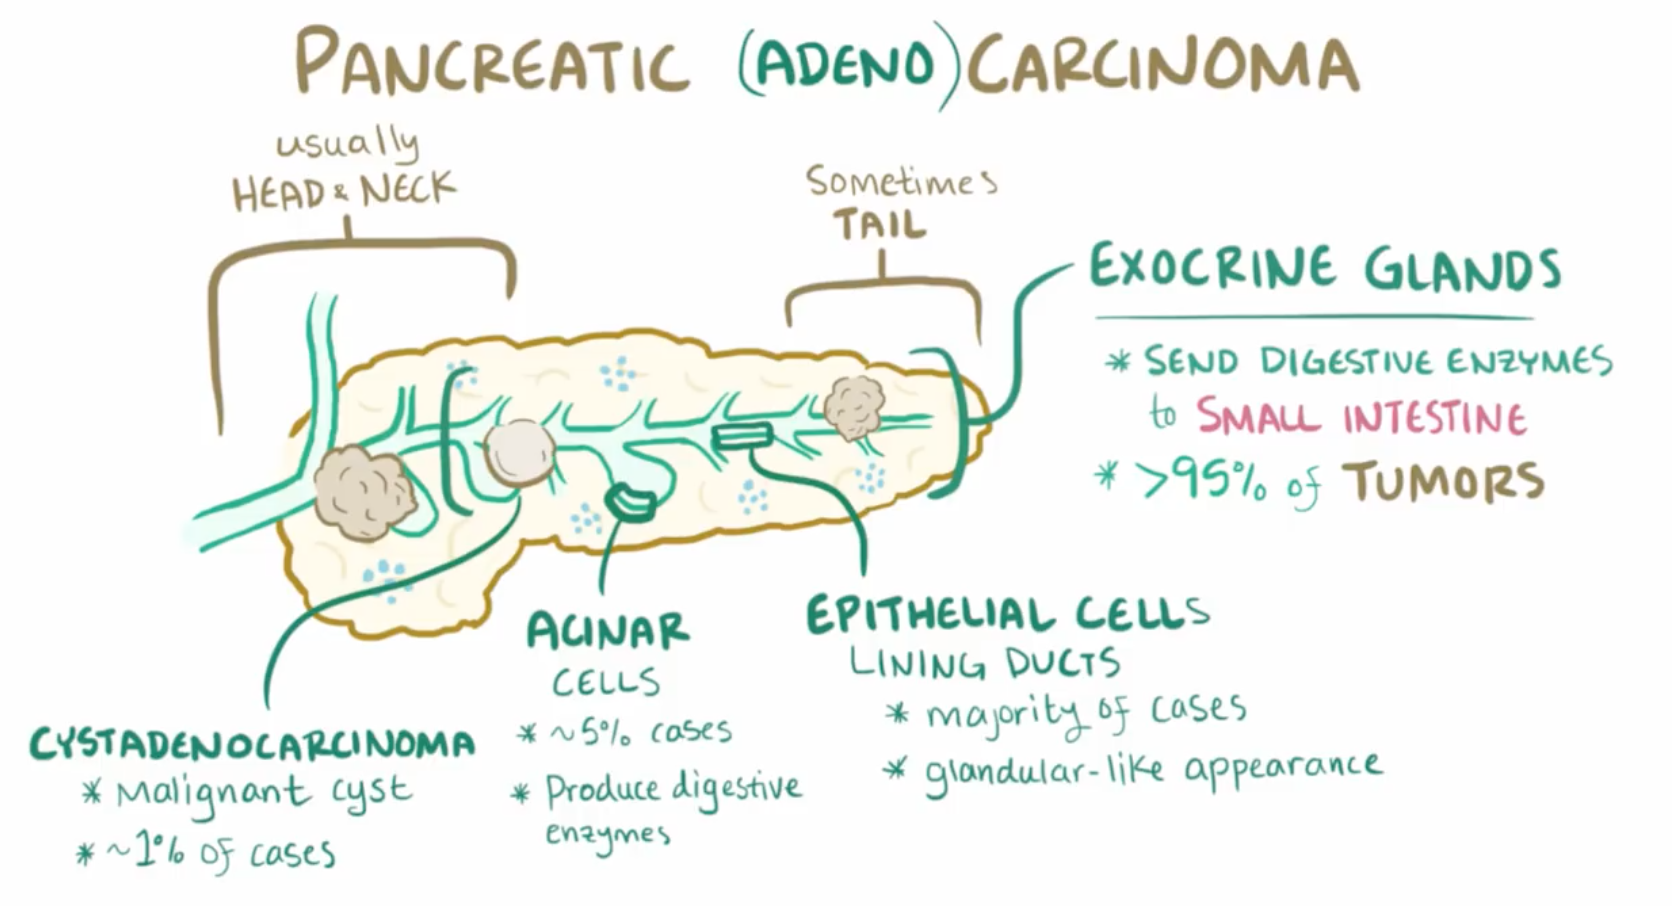 PANCREATIC (ADENO) CARCINOMA
usually
HEAD & NECK
Sometimes
TAIL
EXOCRINE GLANDS
* SEND DIGESTIVE ENZYMES
to SMALL INTESTINE
* >95% of TUMORS
CYSTADENOCARCINOMA
* Malignant cyst
* ~1% of cases
ACINAR
CELLS
* ~5% cases
* Produce digestive
enzymes
EPITHELIAL CELLS
LINING DUCTS
* majority of cases
* glandular-like appearance